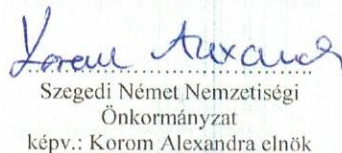 Korom Alexandra
Szegedi Német Nemzetiségi
Önkormányzat
képv.: Korom Alexandra elnök